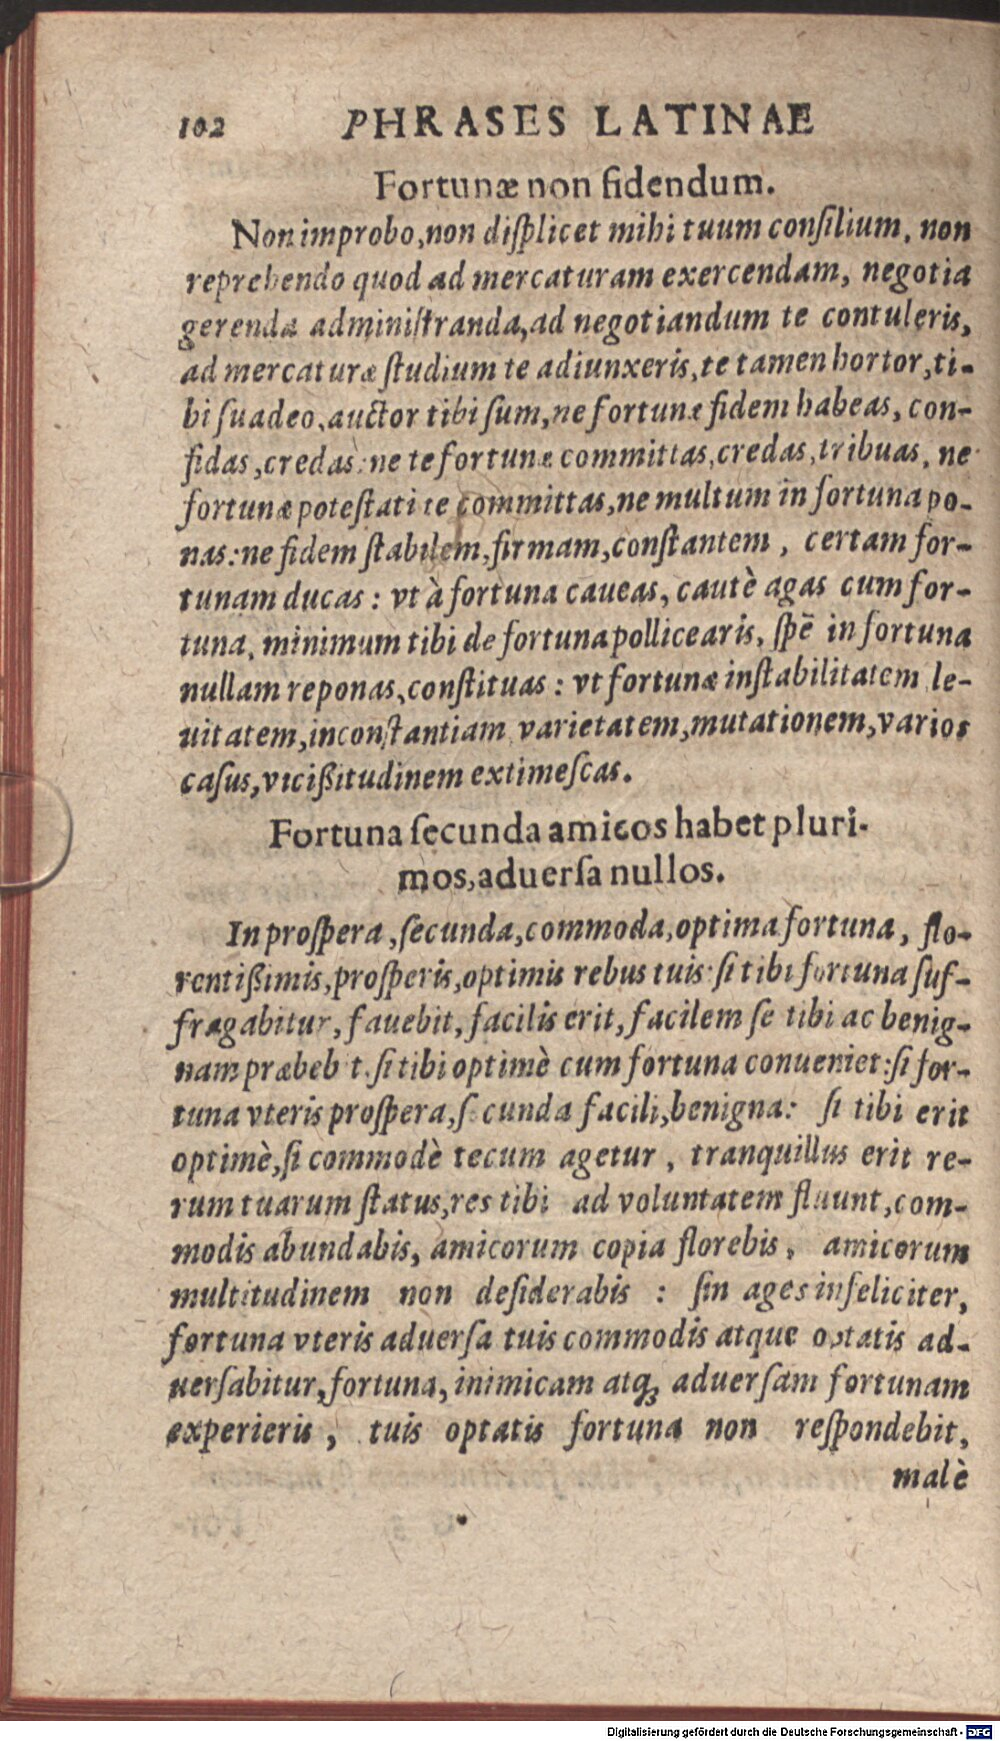 102 PHRASES LATINAE
Fortunæ non fidendum.
Non improbo, non diſplicet mihi tuum conſilium, non
reprehendo quod ad mercaturam exercendam, negotia
gerenda adminiſtranda, ad negotiandum te contuleris,
ad mercaturæ ſtudium te adiunxeris, te tamen hortor, ti-
bi ſuadeo, auctor tibi ſum, ne fortunæ fidem habeas, con-
fidas, credas: ne te fortunæ committas, credas, tribuas, ne
fortunæ poteſtati te committas, ne multum in fortuna po-
nas: ne fidem ſtabilem, firmam, conſtantem, certam for-
tunam ducas: vt à fortuna caueas, cautè agas cum for-
tuna, minimum tibi de fortuna pollicearis, ſpē in fortuna
nullam reponas, conſtituas: vt fortunæ inſtabilitatem le-
uitatem, inconſtantiam varietatem, mutationem, varios
caſus, viciſſitudinem extimeſcas.
Fortuna ſecunda amicos habet pluri-
mos, aduerſa nullos.
In proſpera, ſecunda, commoda, optima fortuna, flo-
rentiſſimis, proſperis, optimis rebus tuis: ſi tibi fortuna ſuf-
fragabitur, fauebit, facilis erit, facilem ſe tibi ac benig-
nam præbeb t. ſi tibi optimè cum fortuna conueniet: ſi for-
tuna vteris proſpera, ſ cunda facili, benigna: ſi tibi erit
optimè, ſi commodè tecum agetur, tranquillus erit re-
rum tuarum ſtatus, res tibi ad voluntatem fluunt, com-
modis abundabis, amicorum copia florebis, amicorum
multitudinem non deſiderabis: ſin ages infeliciter,
fortuna vteris aduerſa tuis commodis atque optatis ad-
uerſabitur, fortuna, inimicam atq; aduerſam fortunam
experieris, tuis optatis fortuna non reſpondebit,
malè
Digitalisierung gefördert durch die Deutsche Forschungsgemeinschaft - DFG